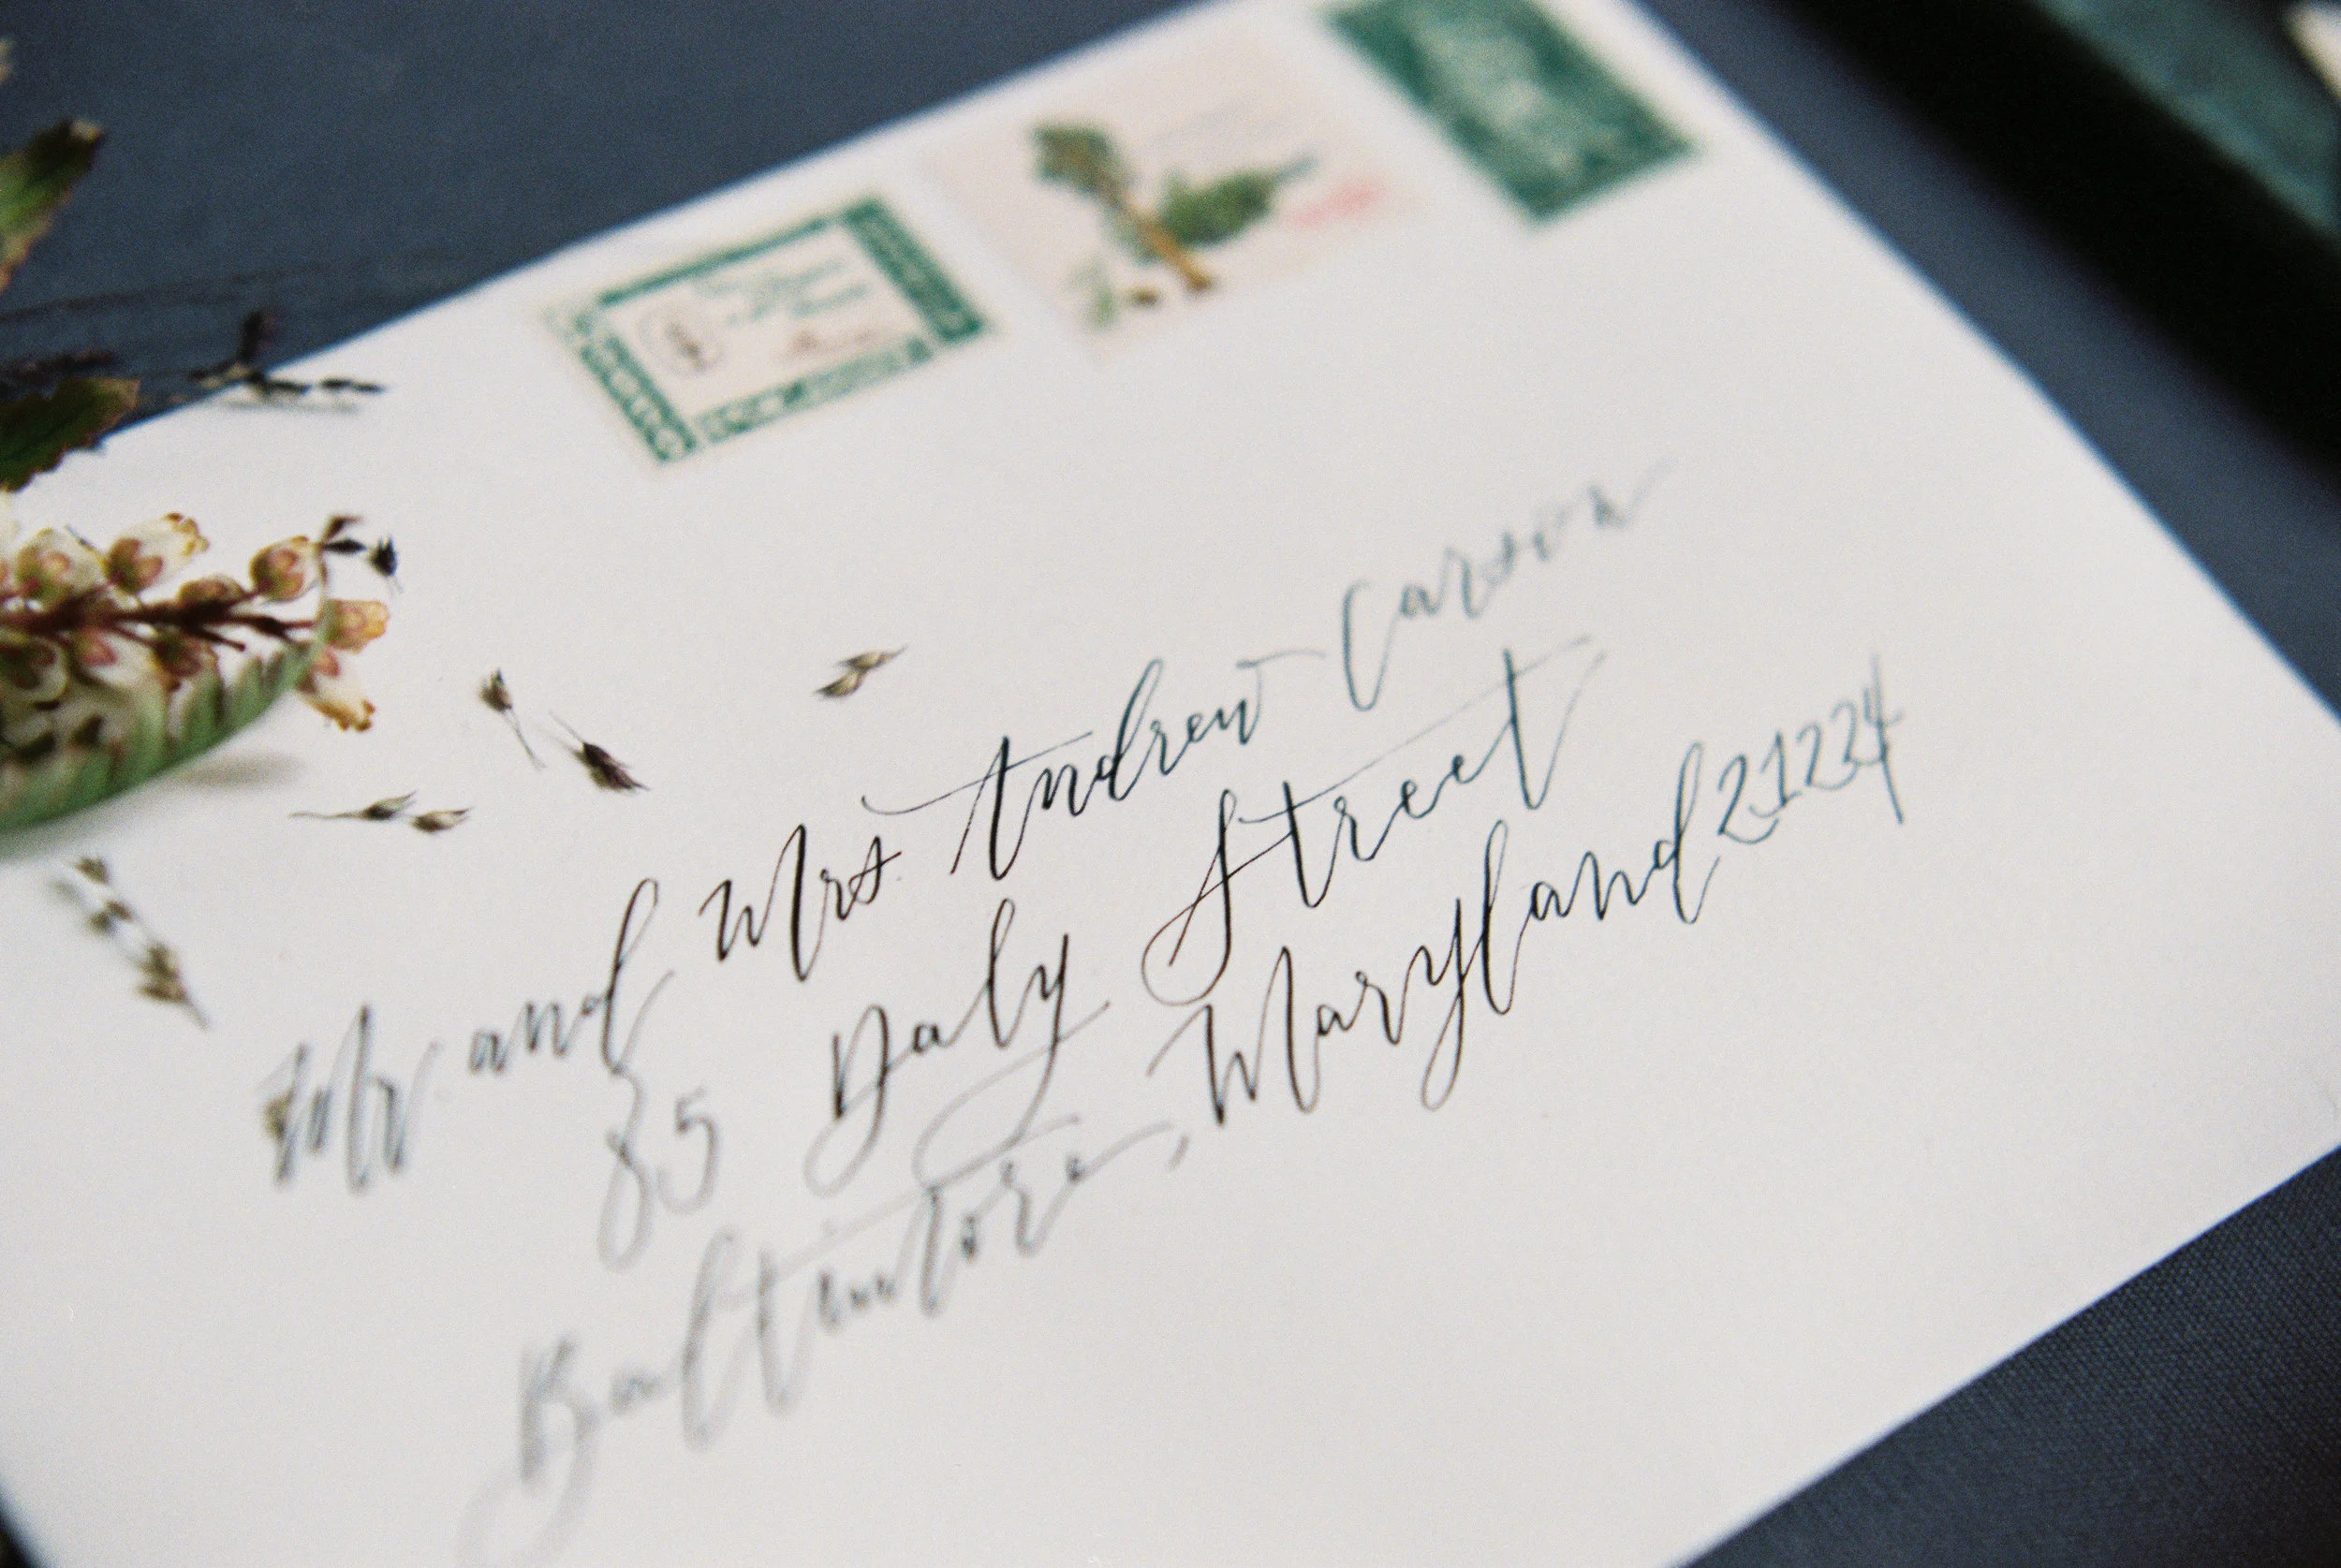 Mr and Mrs Andrew Carson
85 Daly Street
Baltimore, Maryland 21224